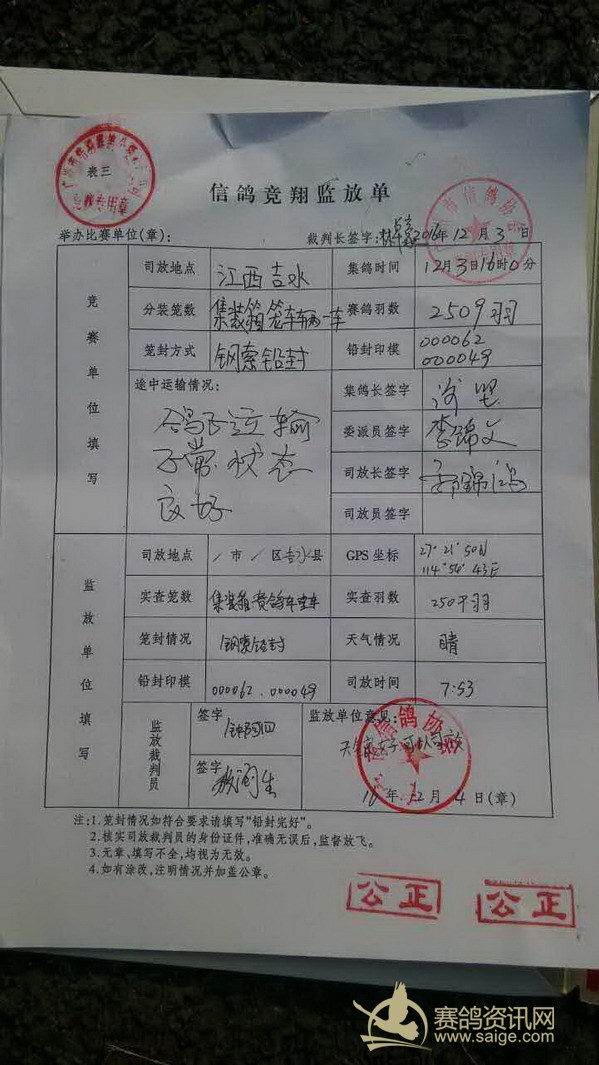 表三
信鸽竞翔监放单
举办比赛单位(章): 裁判长签字: 2016年12月3日
竞赛单位填写
司放地点 江西吉水 集鸽时间 12月3日16时0分
分装笼数 集装箱笼车车辆一车 赛鸽羽数 2509羽
笼封方式 钢索铅封 铅封印模 000062
000049
途中运输情况: 集鸽长签字
鸽子运输 委派员签字 李锦文
正常状态 司放长签字
良好 司放员签字
监放单位填写
司放地点 /市/区吉水县 GPS坐标 27°21'50N
114°54'43E
实查笼数 集装箱赛鸽车壹车 实查羽数 2509羽
笼封情况 钢索铅封 天气情况 晴
铅封印模 000062.000049 司放时间 7:53
监放裁判员 签字 监放单位意见:
天气良好可以司放
签字
16年12月4日(章)
注:1.笼封情况如符合要求请填写“铅封完好”。
2.核实司放裁判员的身份证件,准确无误后,监督放飞。
3.无章、填写不全,均视为无效。
4.如有涂改,注明情况并加盖公章。
市信鸽协会
信鸽协会
公正 公正
赛鸽资讯网
www.saige.com